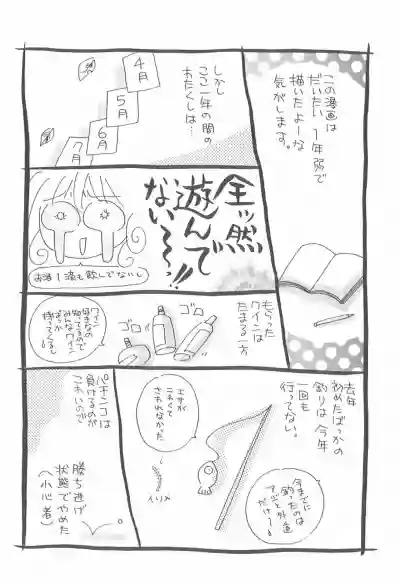 この漫画は
だいたい1年弱で
描いたよーな
気がします。
しかし
ここ一年の間の
わたくしは…
4月
5月
6月
7月
全ッ然
遊んで
ない〜〜っ!!
お酒1滴も飲んでないし
もらった
ワインは
たまる一方
ゴロ
ゴロ
ワイン
好きなの
知ってるので
みんなワイン
ばっか
持ってくるし
去年
初めたばっかの
釣りは今年
一回も
行ってない。
エサが
こわくて
さわれなかった
イソメ
今までに
釣ったのは
アジと外道
だけ〜
パチンコは
負けるのが
こわいので
勝ち逃げ
状態でやめた
(小心者)